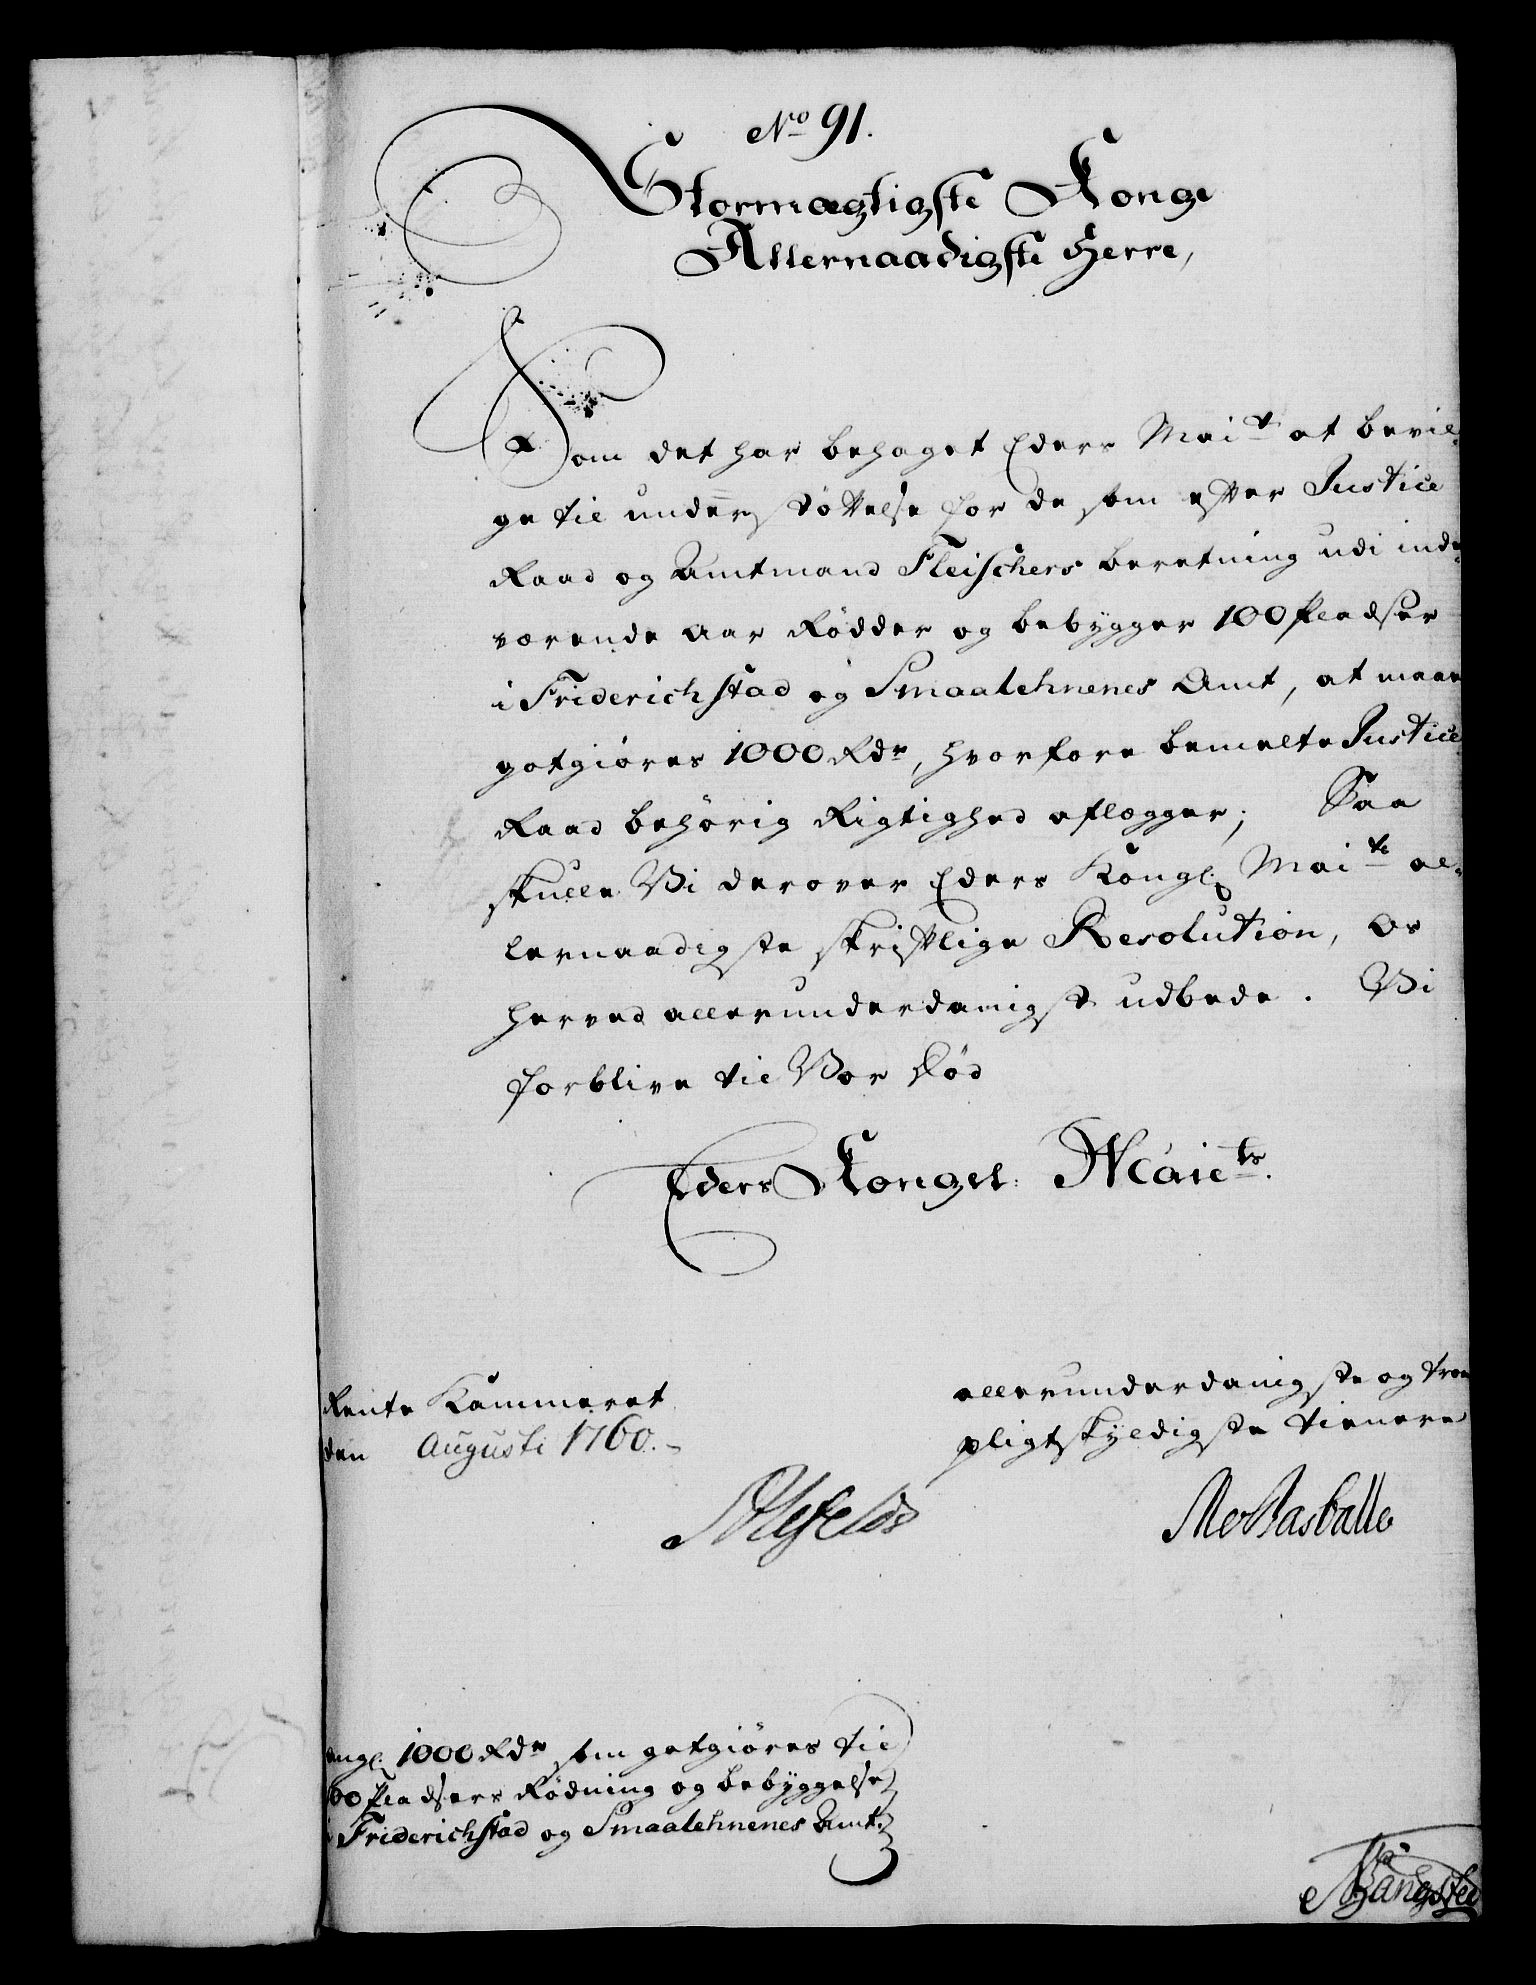 No 91.
Stormægtigste Konge
Allernaadigste Herre,
Som det har behaget Eders Mait at bevil-
ge til understøttelse for de som efter Justice
Raad og Amtmand Fleischers beretning udi inde-
værende Aar Rødder og bebygger 100 Pladser
i Friderichstad og Smaalehnenes Amt, at maae
gotgiøres 1000 Rdr, hvorfore bemelte Justice
Raad behørig Rigtighed aflægger; Saa
skulle Vi derover Eders Kongl: Maits al-
lernaadigste skriftlige Resolution, os
herved allerunderdanigst udbede. Vi
forblive til Vor Død
Eders Kongel: Maiets.
Rente Kammeret
den Augusti 1760.
allerunderdanigste og troe
pligtskyldigste tienere
Ahlefeldt
angl: 1000 Rdr som gotgiøres til
00 Pladsers Rødning og bebyggelse
i Friderichstad og Smaalehnenes Amt.